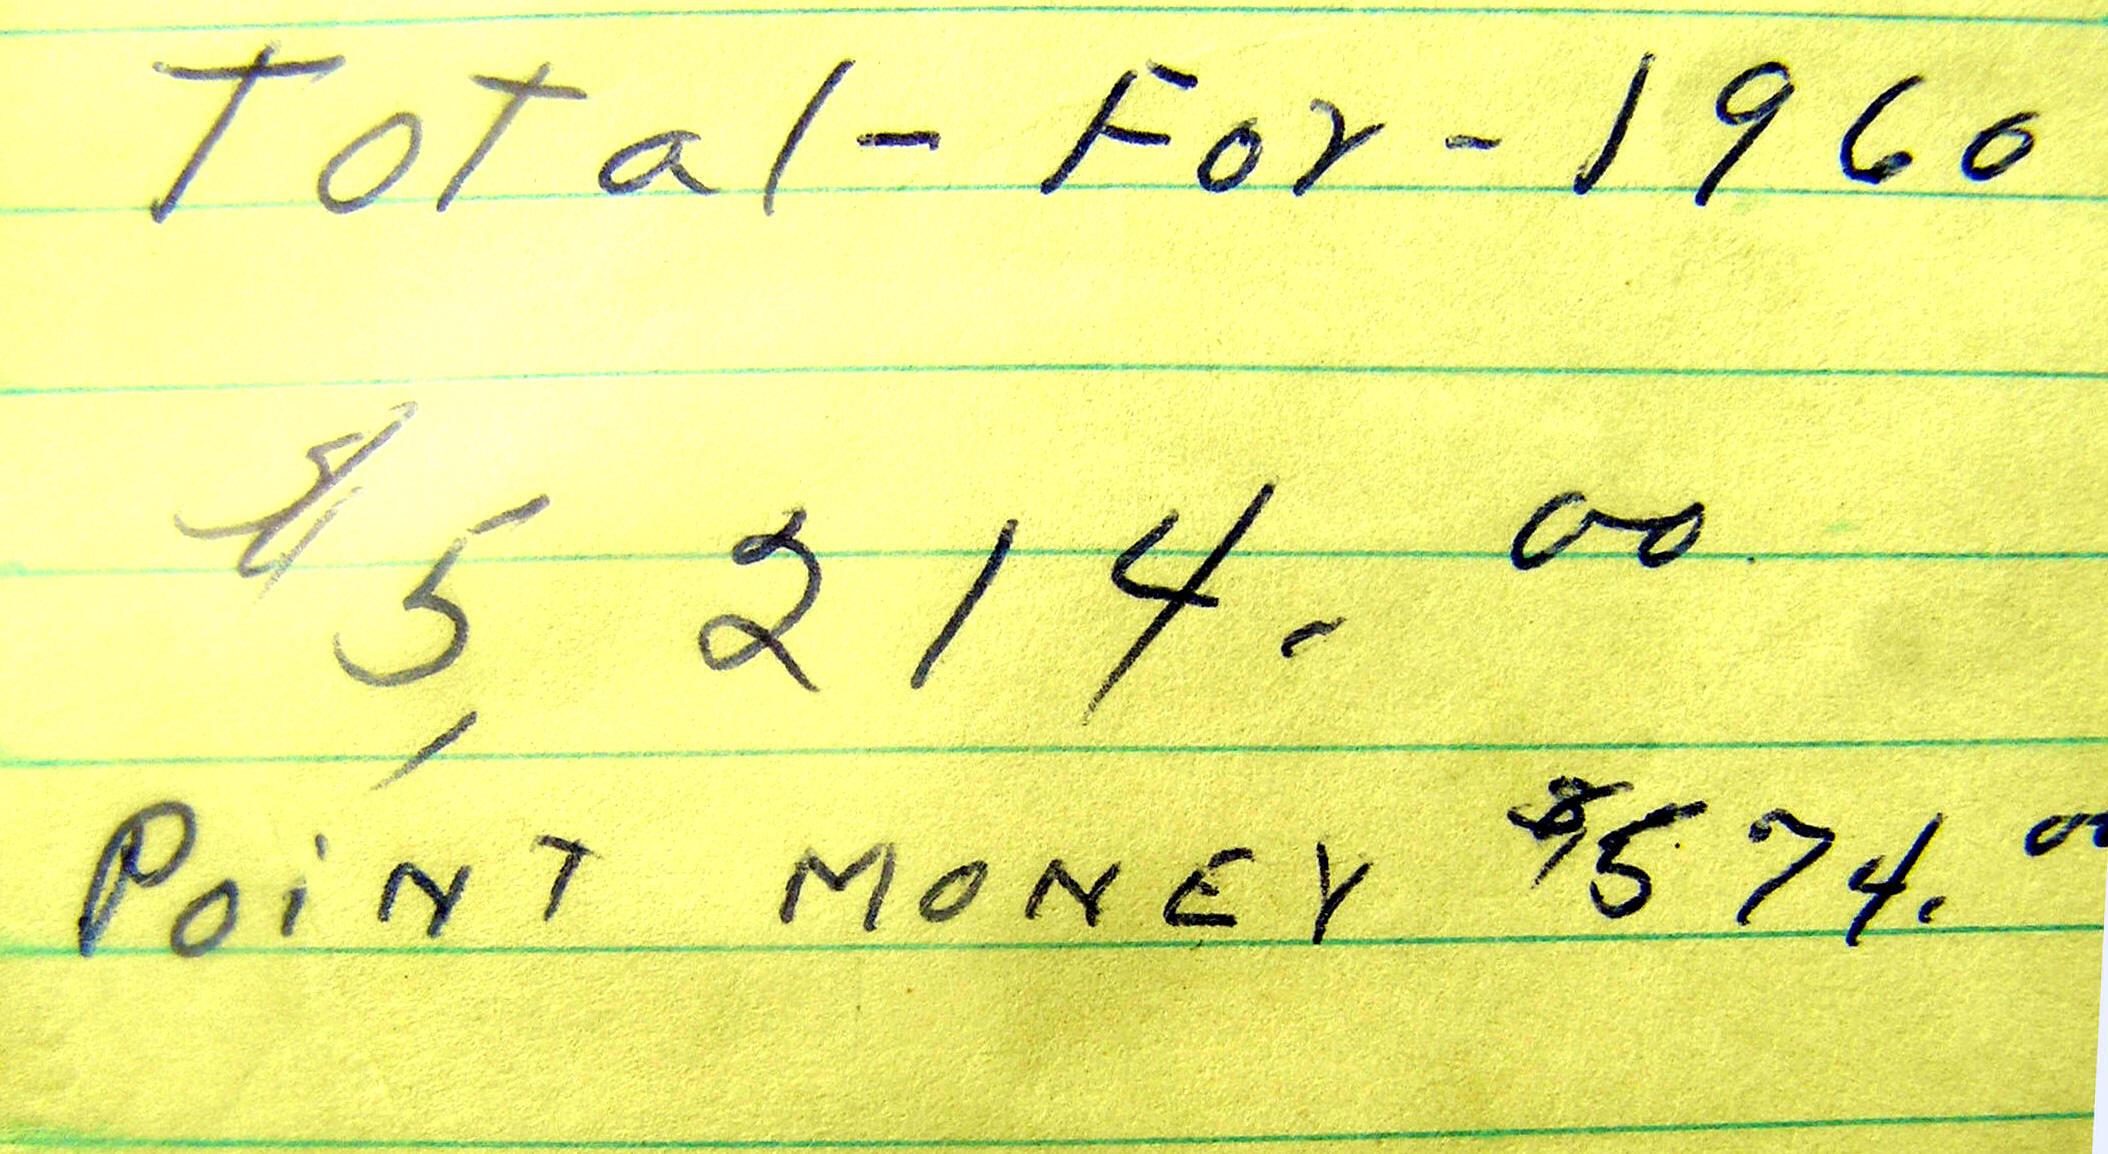 Total - For - 1960
$5,214.00
Point MONEY $574.00